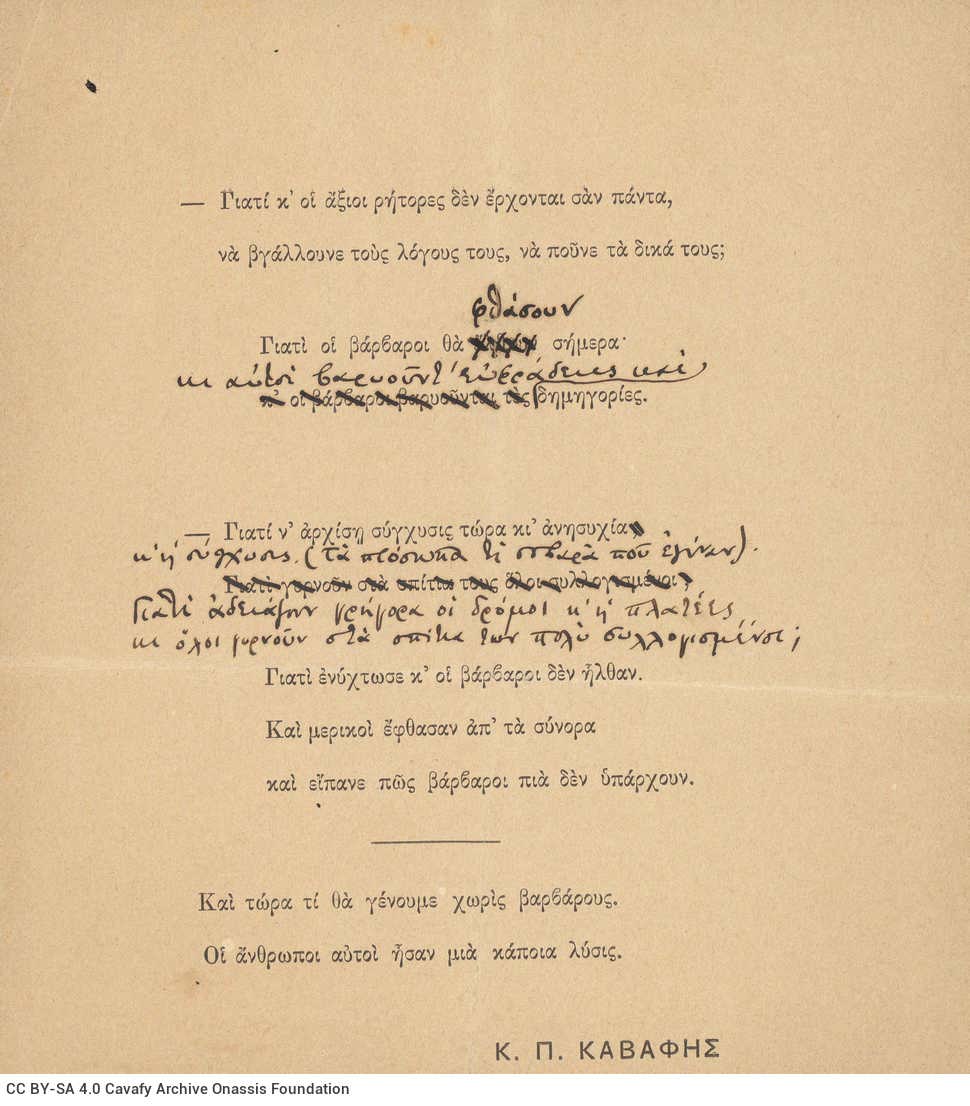 — Γιατί κ' οἱ ἄξιοι ρήτορες δὲν ἔρχονται σὰν πάντα,
νὰ βγάλλουνε τοὺς λόγους τους, νὰ ποῦνε τὰ δικά τους;
φθάσουν
Γιατὶ οἱ βάρβαροι θὰ σήμερα·
κι αὐτοὶ βαρυοῦντ' εὐφράδειες καὶ
κ' οἱ βάρβαροι βαρυοῦνται τὲς δημηγορίες.
— Γιατί ν' ἀρχίσῃ σύγχυσις τώρα κι' ἀνησυχία
κ' ἡ σύγχυσις. (τὰ πρόσωπα τί σοβαρὰ ποῦ ἐγίναν).
Γιατὶ γυρνοῦν στὰ σπίτια τους ὅλοι συλλογισμένοι;
Γιατί ἀδειάζουν γρήγορα οἱ δρόμοι κ' ἡ πλατέες,
κι ὅλοι γυρνοῦν στὰ σπίτια των πολὺ συλλογισμένοι;
Γιατὶ ἐνύχτωσε κ' οἱ βάρβαροι δὲν ἦλθαν.
Καὶ μερικοὶ ἔφθασαν ἀπ' τὰ σύνορα
καὶ εἴπανε πῶς βάρβαροι πιὰ δὲν ὑπάρχουν.
Καὶ τώρα τί θὰ γένουμε χωρὶς βαρβάρους.
Οἱ ἄνθρωποι αὐτοὶ ἦσαν μιὰ κάποια λύσις.
Κ. Π. ΚΑΒΑΦΗΣ
CC BY-SA 4.0 Cavafy Archive Onassis Foundation